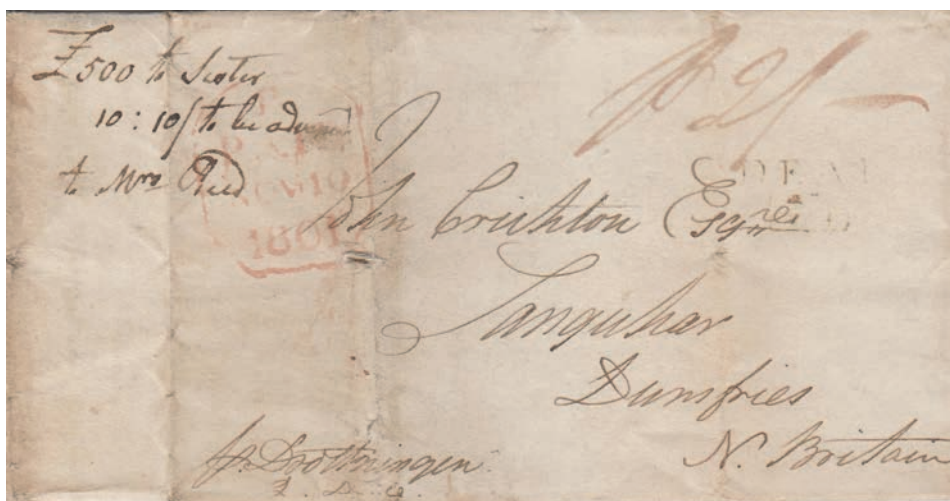 £500 to Sister
10:10/ to be
to Mrs Reid
NOV 19
1801
P 2/
DEAL
John Crichton Esqre
Sanquhar
Dumfries
N. Britain
pr Drottningen